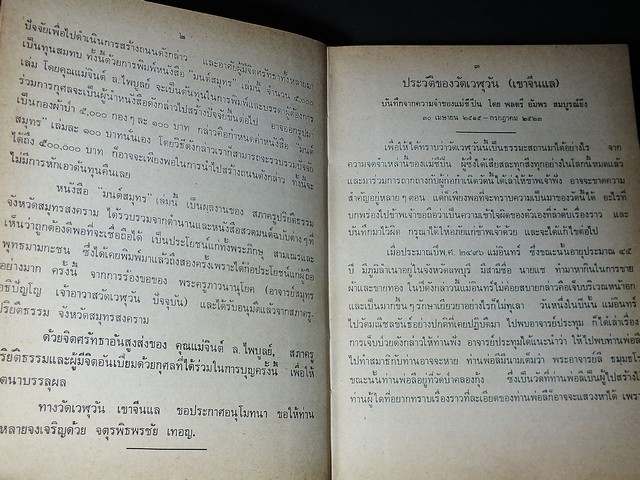 ๒
ปัจจัยเพื่อไปดำเนินการสร้างถนนดังกล่าว และอาศัยผู้มีจิตศรัทธาทั้งหลายมา
เป็นทุนสมทบ ทั้งนี้ด้วยการพิมพ์หนังสือ "มนต์สมุทร" เล่มนี้ จำนวน ๕,๐๐๐
เล่ม โดยคุณแม่จินต์ ล.ไพบูลย์ จะเป็นต้นทุนในการพิมพ์และบรรดาผู้ต้องการ
ร่วมการกุศลจะเป็นผู้นำหนังสือดังกล่าวไปสร้างปัจจัยขึ้นต่อไป อาจออกรูปมา
เป็นกองผ้าป่า ๕,๐๐๐ กองๆ ละ ๑๐๐ บาท กล่าวคือกำหนดค่าหนังสือ "มนต์
สมุทร" เล่มละ ๑๐๐ บาทนั่นเอง โดยวิธีดังกล่าวเราก็สามารถจะรวบรวมปัจจัย
ได้ถึง ๕๐๐,๐๐๐ บาท ก็อาจจะเพียงพอในการนำไปสร้างถนนดังกล่าว ทั้งนี้จะ
ไม่มีการหักเอาต้นทุนคืนเลย
หนังสือ "มนต์สมุทร" เล่มนี้ เป็นผลงานของ สภาครูปริยัติธรรม
จังหวัดสมุทรสงคราม ได้รวบรวมจากตำนานและหนังสือสวดมนต์ฉบับต่างๆที่
เห็นว่าถูกต้องดีพอที่จะเชื่อถือได้ เป็นประโยชน์แก่ทั้งพระภิกษุ สามเณรและ
พุทธมามกะชน ซึ่งได้เคยพิมพ์มาแล้วถึงสองครั้งเพราะได้ก่อประโยชน์แก่ผู้ถือ
อย่างมาก ครั้งนี้ จากการร้องขอของ พระครูภาวนานุโยค (อาจารย์สมุทร
อธิปัญโญ เจ้าอาวาสวัดเวฬุวัน ปัจจุบัน) และได้รับอนุมัติแล้วจากสภาครู-
ปริยัติธรรม จังหวัดสมุทรสงคราม
ด้วยจิตศรัทธาอันสูงส่งของ คุณแม่จินต์ ล.ไพบูลย์, สภาครู
ปริยัติธรรมและผู้มีจิตอันเปี่ยมด้วยกุศลที่ได้ร่วมในการบุญครั้งนี้ เพื่อให้
ตนาบรรลุผล
ทางวัดเวฬุวัน เขาจีนแล ขอประกาศอนุโมทนา ขอให้ท่าน
หลายจงเจริญด้วย จตุรพิธพรชัย เทอญ.
๓
ประวัติของวัดเวฬุวัน (เขาจีนแล)
บันทึกจากความจำของแม่ชีปิ่น โดย พลตรี อัมพร สมบูรณ์ยิ่ง
๓๐ เมษายน ๒๕๑๕—กรกฎาคม ๒๕๒๓
เพื่อให้ได้ทราบว่าวัดเวฬุวันนี้เป็นธรรมะสถานมาได้อย่างไร จาก
ความจดจำเหล่านี้ของแม่ชีปิ่น ผู้ซึ่งได้เสียสละทุกสิ่งทุกอย่างในโลกนี้หมดแล้ว
และมาร่วมการถากถางกับผู้ก่อกำเนิดวัดนี้ได้เล่าให้ข้าพเจ้าฟัง อาจจะขาดความ
สำคัญอยู่หลายๆ ตอน แต่ก็เพียงพอที่จะทราบความเป็นมาของวัดนี้ได้ อะไรที่
บกพร่องไปข้าพเจ้าขอถือว่าเป็นความเข้าใจผิดของตัวเองที่ลำดับเรื่องราว และ
บันทึกมาไว้ผิด กรุณาได้ให้อภัยแก่ข้าพเจ้าด้วย และจะได้แก้ไขต่อไป
เมื่อประมาณปีพ.ศ. ๒๔๙๖ แม่อินทร์ ซึ่งขณะนั้นอายุประมาณ ๔๕
ปี มีภูมิลำเนาอยู่ในจังหวัดลพบุรี มีสามีชื่อ นายแช ทำมาหากินในการขาย
ผ้าและขายทอง ในปีดังกล่าวนี้แม่อินทร์ไม่ค่อยสบายกล่าวคือเจ็บบริเวณหน้าอก
และเป็นมากขึ้นๆรักษาเยียวยาอย่างไรก็ไม่ทุเลา วันหนึ่งในปีนั้น แม่อินทร์
ไปวัดมณีชลขันธ์อย่างปกติที่เคยปฏิบัติมา ไปพบอาจารย์ประทุม ก็ได้เล่าเรื่อง
การเจ็บป่วยดังกล่าวให้ท่านฟัง อาจารย์ประทุมได้แนะนำว่า ให้ไปพบท่านพ่อลี
ไปทำสมาธิกับท่านอาจจะหาย ท่านพ่อลีมีนามเต็มว่า พระอาจารย์ลี ธมฺมธโร
ขณะนั้นท่านพ่อลีอยู่ที่วัดป่าคลองกุ้ง ซึ่งเป็นวัดที่ท่านพ่อลีเป็นผู้ไปสร้างไว้
ท่านผู้ใดที่อยากทราบเรื่องราวที่ละเอียดของท่านพ่อลีก็อาจจะแสวงหาได้ เพรา